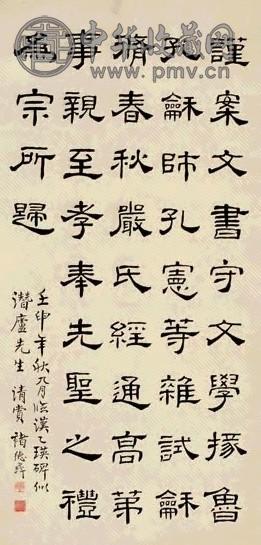 中华收藏网
www.pmv.cn
謹案文書守文學掾魯
孔龢師孔憲等雜試龢
脩春秋嚴氏經通高第
事親至孝奉先聖之禮
為宗所歸
壬申年秋九月臨漢乙瑛碑似
潛廬先生清賞 褚德彝